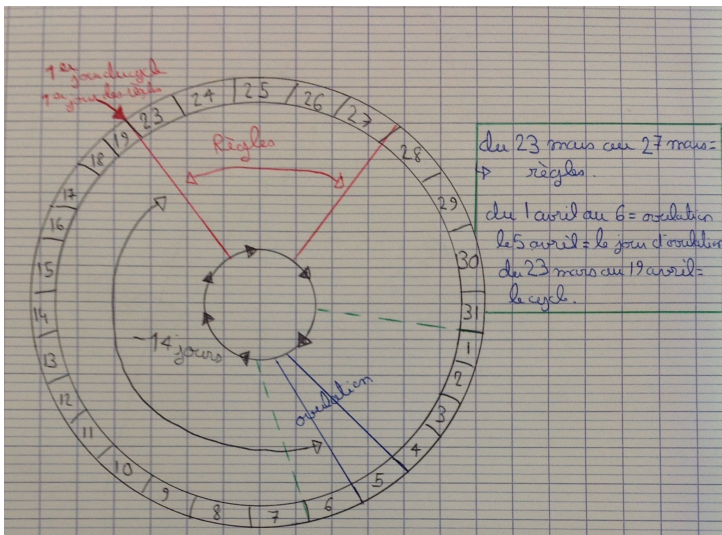 1er
jour du cycle
1er jour des règles
23 24 25 26 27 28 29 30 31 1 2 3 4 5 6 7 8 9 10 11 12 13 14 15 16 17 18 19
Règles
-14 jours
ovulation
du 23 mars au 27 mars =
règles.
du 1 avril au 6 = ovulation
le 5 avril = le jour d'ovulation
du 23 mars au 19 avril =
le cycle.